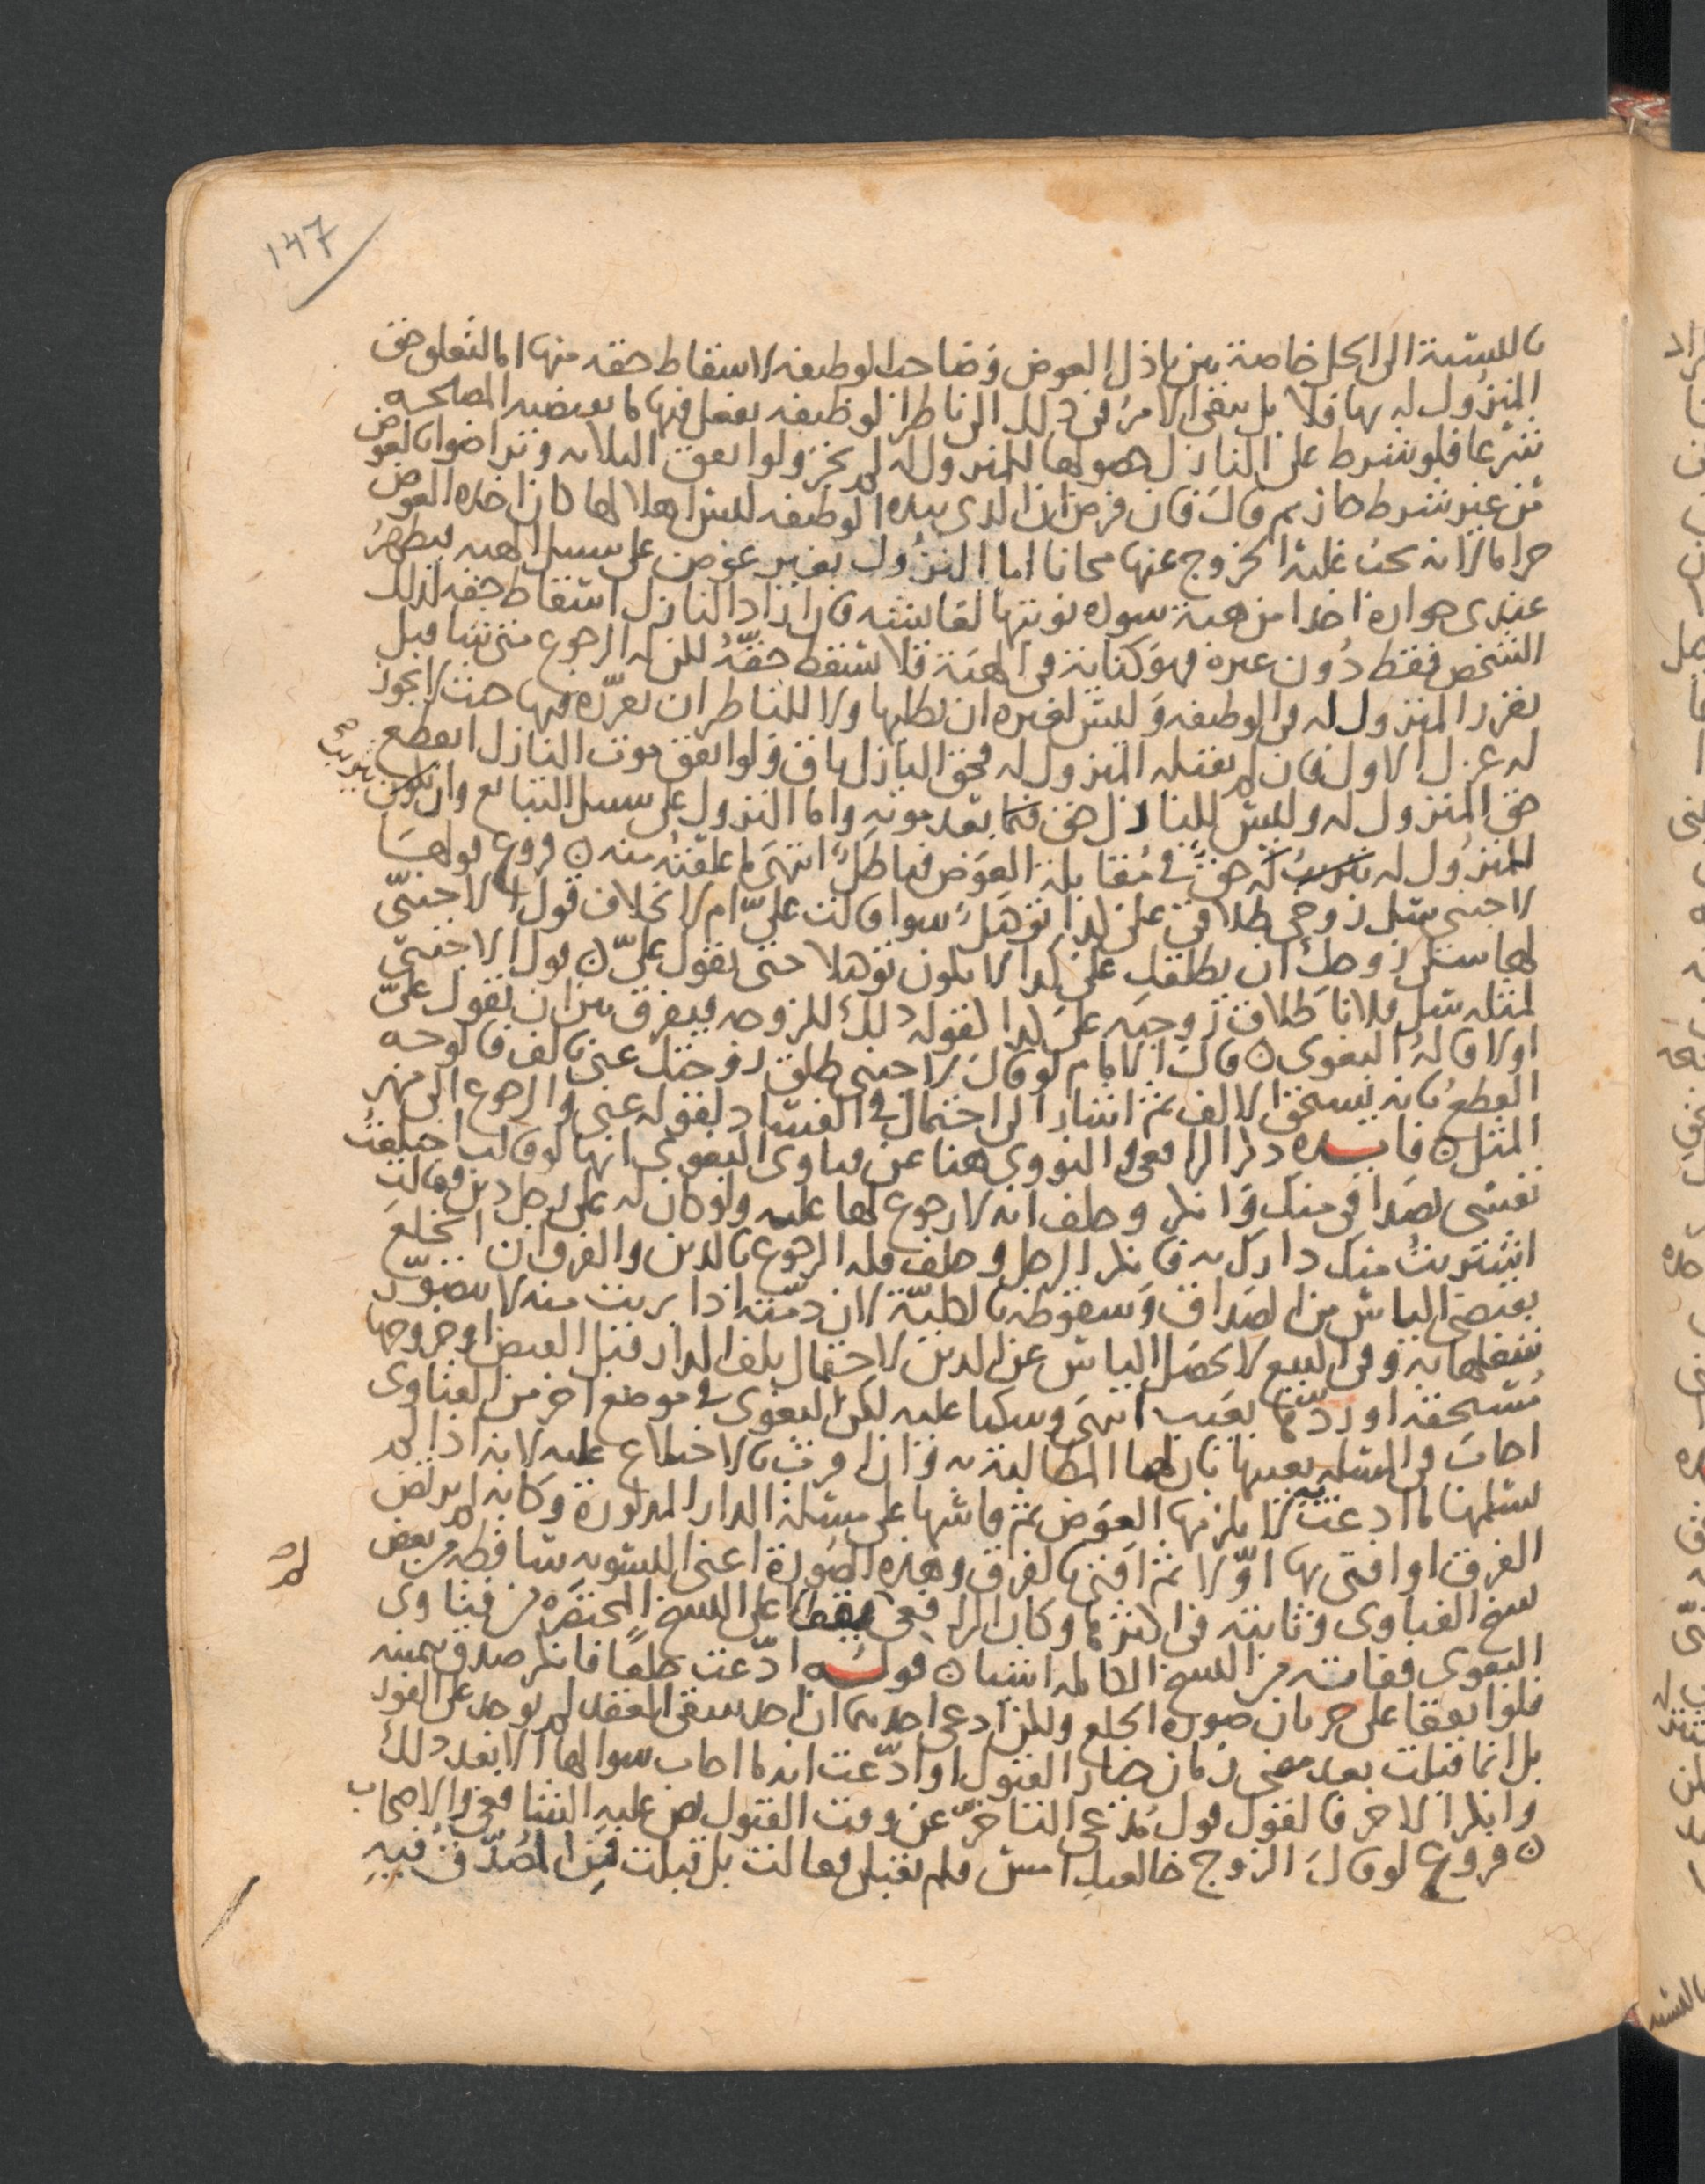 ١٤٧
بالنسبة الى الحل خاصة بين باذل العوض وصاحب الوظيفه لاسقاط حقه منها اما لتعلق حق
المنزول له بها فلا بل يبقى الامر في ذلك الى ناظر الوظيفه يفعل فيها ما يقتضيه المصلحه
شرعا فلو شرط على النازل حصولها للمنزول له لم يجز ولو اتفق الثلاثه وتراضوا بالعوض
من غير شرط جاز ثم قال فان فرض ان الذي بيده الوظيفه ليس اهلا لها كان اخذه العوض
حراما لانه يجب عليه الخروج عنها مجانا اما النزول بغير عوض على سبيل الهبه فيظهر
عندي جوازه اخذا من هبة سوده نوبتها لعايشه فان اراد النازل اسقاط حقه لذلك
الشخص فقط دون غيره فهو كناية في الهبة فلا يسقط حقه لكن له الرجوع متى شا قبل
تقرر المنزول له في الوظيفه وليس لغيره ان يطلبها ولا للناظر ان يقرره فيها حيث لا يجوز
له عزل الاول فان لم يقبله المنزول له فحق النازل باق ولو اتفق موت النازل انقطع
حق المنزول له وليس للنازل حق فيما بعد موته واما النزول على سبيل التبايع وان يكون
للمنزول له له حق في مقابلة العوض فباطل انتهى ما علقته منه ن فروع قولها
لاجنبي سل زوجي طلاقي على كذا توكيل سوا قالت علي ام لا بخلاف قول الاجنبي
لها سلي زوجك ان يطلقك على كذا لا يكون توكيلا حتى يقول علي ن قول الاجنبي
لمثله سل فلانا طلاق زوجته على كذا كقوله ذلك للزوجه فيفرق بين ان يقول علي
اولا قاله البغوي ن قال الامام لو قال لاجنبي طلق زوجتك عني بالف فالوجه
القطع بانه يستحق الالف ثم اشار الى احتمال في الفساد لقوله عني والرجوع الى مهر
المثل ن فايده ذكر الرافعي والنووي هنا عن فتاوى البغوي انها لو قالت اختلعت
نفسي بصداقي منك وانكر وحلف انه لا رجوع لها عليه ولو كان له على رجل دين فقالت
اشتريت منك دارك به فانكر الرجل وحلف فله الرجوع بالدين والفرق ان الخلع
يقتضي الياس من الصداق وسقوطه بالكلية لان ذمته اذا بريت منه لا يتصور
شغلها به وفي البيع لا يحصل الياس عن الدين لاحتمال تلف الدار قبل القبض او خروجها
مستحقه او ردها بعيب انتهى وسكتا عليه لكن البغوي في موضع اخر من الفتاوى
اجاب في المسله بعينها بان لها المطالبة به وان اقرت بالاختلاع عليه لانه اذا لم
يسلمها ما ادعت به لا يلزمها العوض ثم قاسها على مسئلة الدار المذكورة وكانه لم يرتض
الفرق او افتى بها اولا ثم افتى بالفرق وهذه الصورة اعني التسويه ساقطه من بعض
نسخ الفتاوى وثابته في اكثرها وكان الرافعي على النسخ المختصره من فتاوى
البغوي ففاته من النسخ الكامله اشيا ن قوله ادعت خلعا فانكر صدق بيمينه
فلو اتفقا على جريان صورة الخلع ولكن ادعى احدهما ان احد شقي العقد لم يوجد على الفور
بل انما قبلت بعد مضي زمان خيار القبول او ادعت انه ما اجاب سوالها الا بعد ذلك
وانكر الاخر فالقول قول مدعي التاخر عن وقت القبول نص عليه الشافعي والاصحاب
ن فروع لو قال الزوج خالعتك امس فلم تقبلي فقالت بل قبلت فمن المصدق فيه